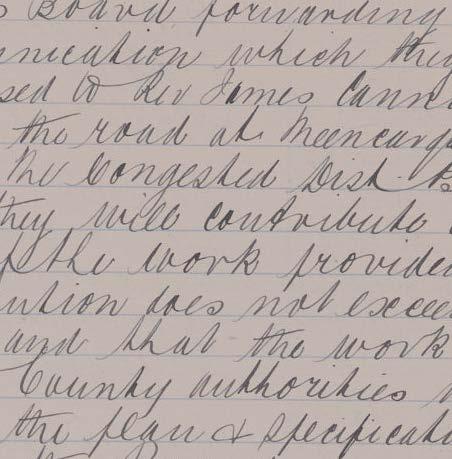 s Board forwarding
nication which they
sed to Rev James Cann
the road at Meencarg
the Congested Dist B
they will contribute
f the work provide
ution does not excee
and that the work
County authorities
the plan & specificati